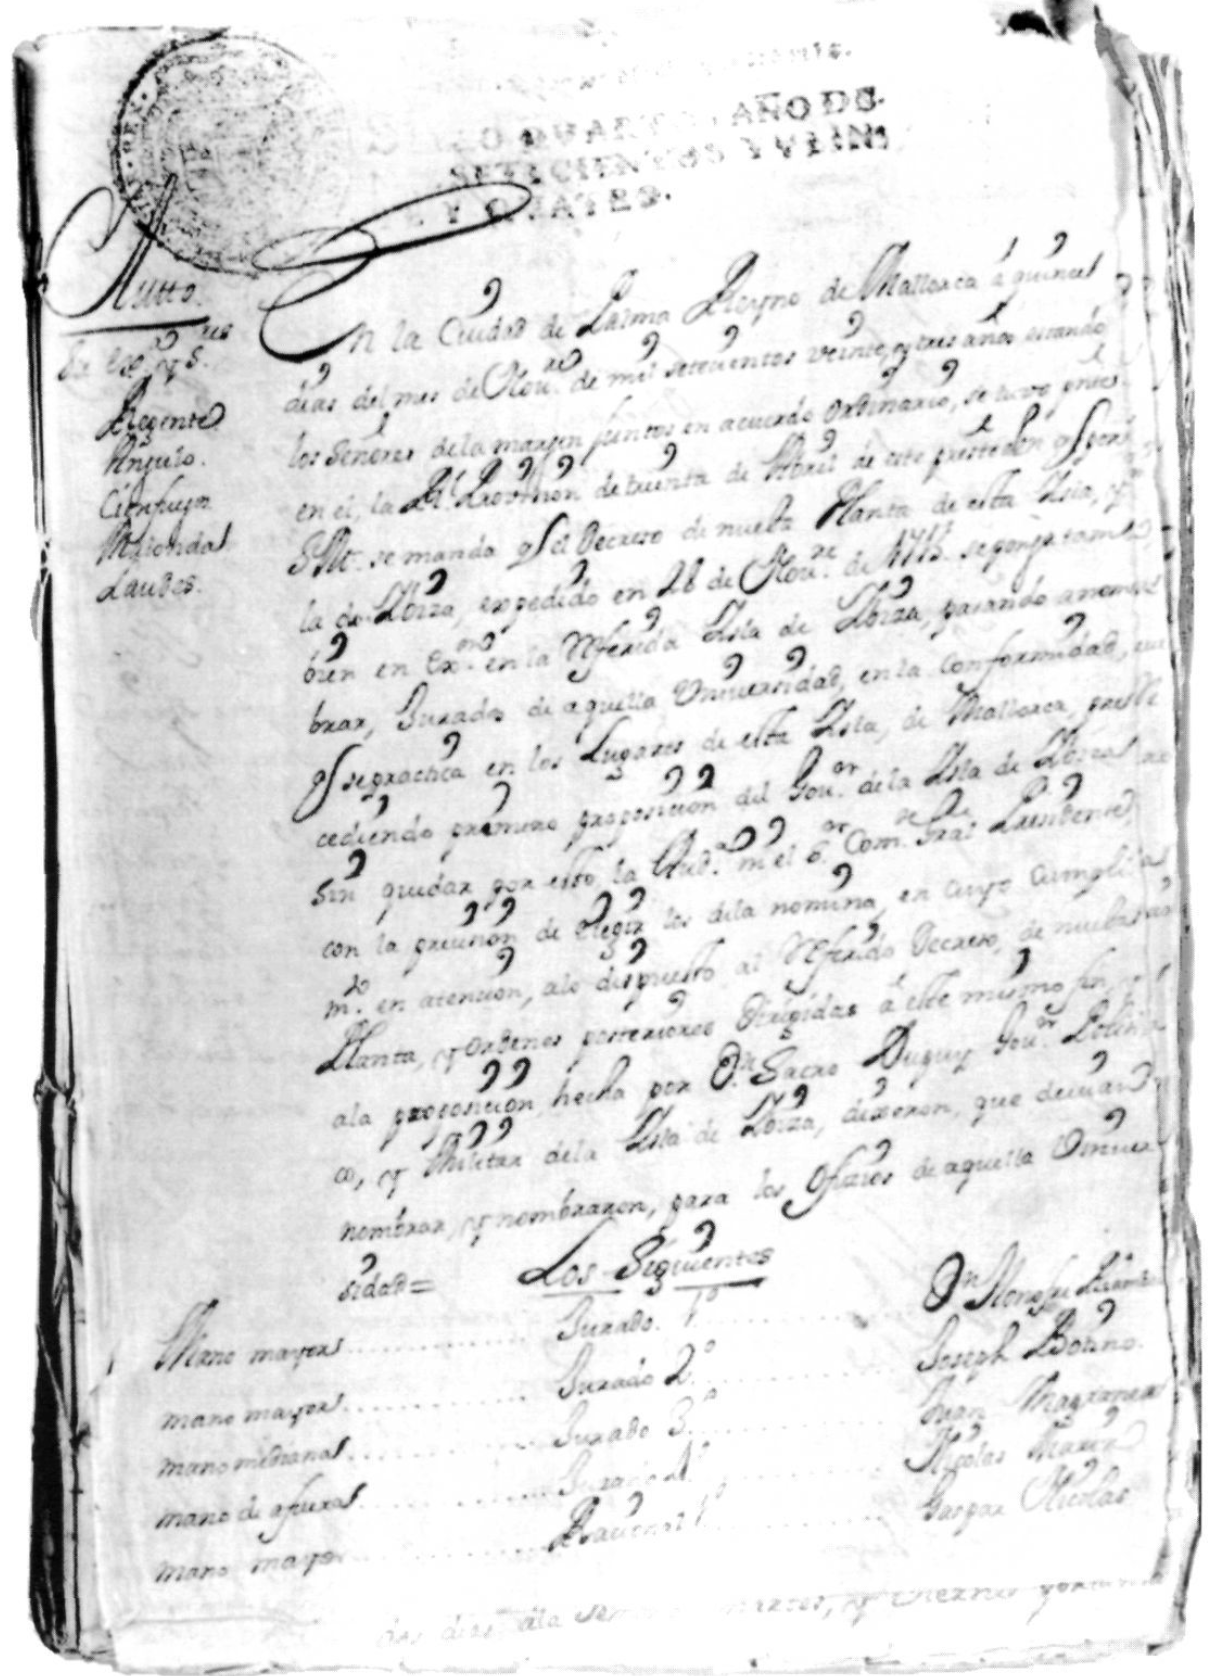 QUARTO, AÑO DE
SETECIENTOS Y VEIN
Y QUATRO.
Autto.
Regente
Angulo.
Cienfuegos
Malonda
Laudes.
En la Ciudad de Palma Reyno de Mallorca á quince
dias del mes de Nov.re de mil setecientos veinte, y tres años estando
los Señores de la margen juntos en acuerdo ordinario, se tuvo pnte
en el, la Rl. Provision de treinta de Abril de este preste año
S.M. se manda q el Decreto de nueba Planta de esta Isla, y
la de Ibiza, expedido en 28 de Nov.re de 1715. se ponga tam
bien en Ex.on en la referida Isla de Ibiza, pasando a nom
brar, Jurados de aquella Universidad, en la conformidad,
q se practica en los Lugares de esta Isla, de Mallorca, pre
cediendo primero proposicion del Gov.or de la Isla de Ibiza
sin quedar por esto, la Aud.a ni el Com.te Gral Presidente,
con la precision de elegir los dela nomina, en cuyo cumpli
m.to en atencion, alo dispuesto al referido Decreto, de nueba
Planta, y ordenes posteriores dirigidas á este mismo fin,
ala proposicion, hecha por D.n Gov.or Politi
co, y Militar dela Isla de Ibiza, dixeron, que devian
nombrar, y nombraron, para los oficios de aquella Univer
sidad=
Los Siguientes
Mano mayor ......... Jurado. 1º ......... D.n
mano mayor ......... Jurado 2º ......... Joseph Botino.
mano mediana ......... Jurado 3º ......... Juan
mano de afuera ......... Jurado 4º ......... Nicolas Marin
mano mayor ......... Racional ......... Gaspar Nicolas
dos dias dela martes, y viernes